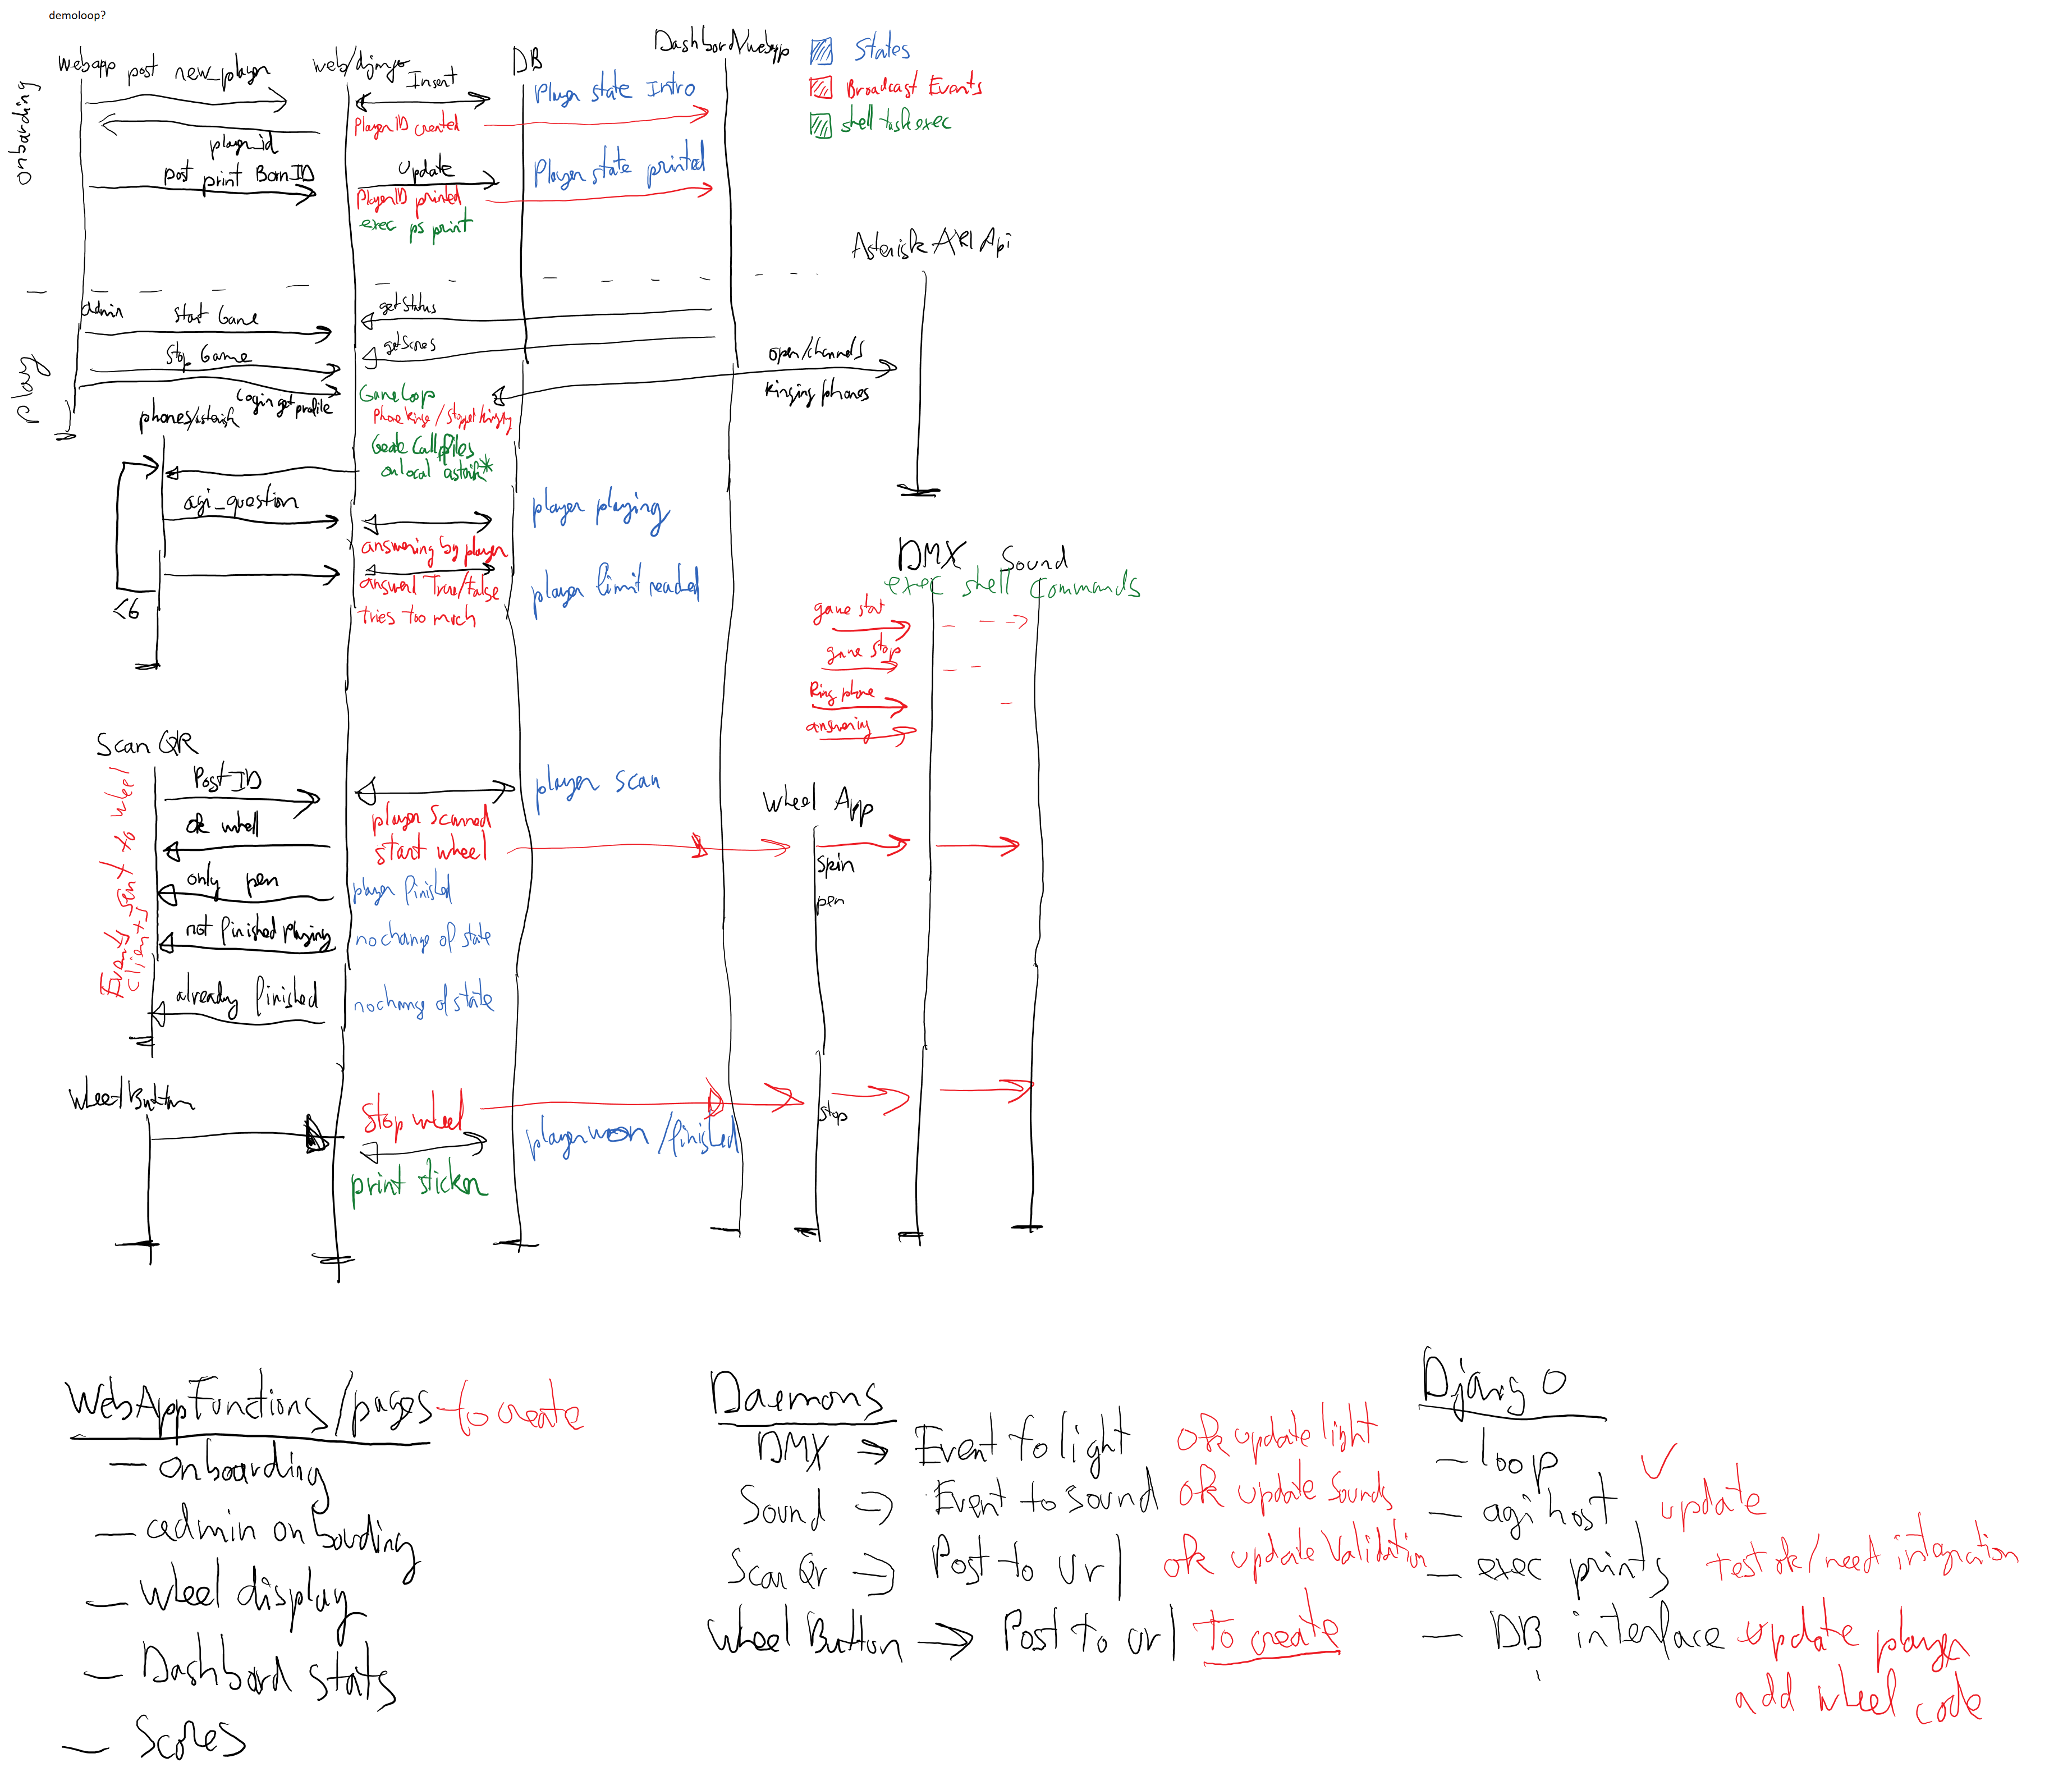 demoloop?
webapp
post new_player
web/django
Insert
DB
Dashbord/webapp
States
Broadcast Events
shell task exec
onboarding
Player state Intro
PlayerID created
player_id
post print BornID
update
Player state printed
PlayerID printed
exec ps print
Asterisk ARI Api
play
admin
Start Game
getStatus
Stop Game
getScores
open/channels
Ringing phones
Login get profile
GameLoop
phones/asterisk
Create Callfiles
on local asterisk*
agi_question
player playing
answering by player
answerd True/false
tries too much
player limit reached
<6
DMX
Sound
exec shell commands
game start
game stop
Ring phone
answering
Scan QR
Post ID
ok whell
only pen
not finished playing
already finished
Events sent to wheel
clients
player scan
player scanned
start wheel
player finished
no change of state
no change of state
Wheel App
spin
pen
Wheel Button
Stop wheel
stop
player won / finished
print sticker
WebAppFunctions/pages - to create
- onboarding
- admin onboarding
- wheel display
- Dashbord stats
- Scores
Daemons
DMX → Event to light ok update light
Sound → Event to sound ok update sounds
Scan Qr → Post to url ok update Validation
Wheel Button → Post to url to create
Django
- loop ✓
- agi host update
- exec prints test ok/need integration
- DB interface update player
add wheel code